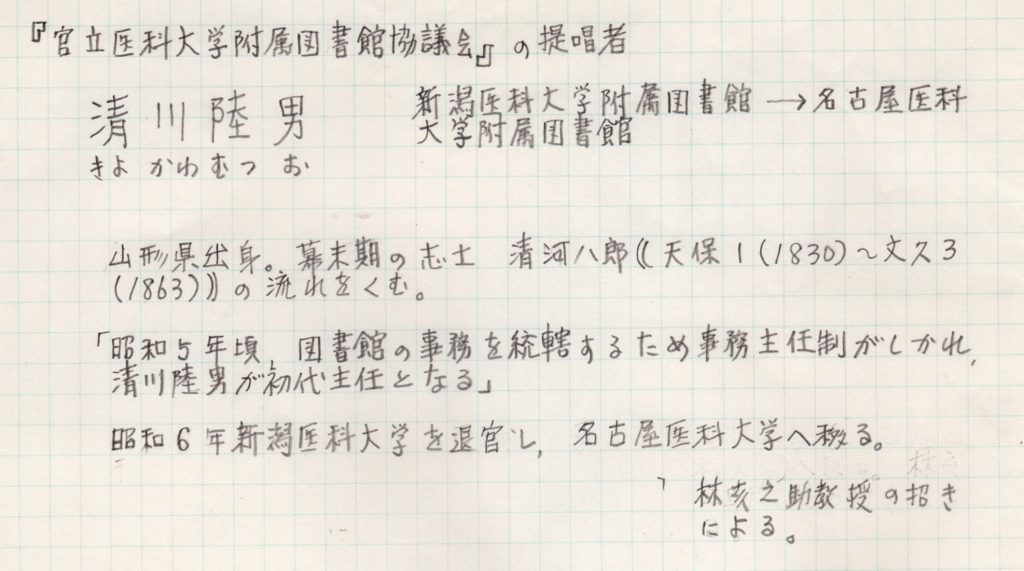 『官立医科大学附属図書館協議会』の提唱者
清川陸男
きよかわむつお
新潟医科大学附属図書館→名古屋医科
大学附属図書館
山形県出身。幕末期の志士 清河八郎((天保1(1830)~文久3
(1863)))の流れをくむ。
「昭和5年頃,図書館の事務を統轄するため事務主任制がしかれ,
清川陸男が初代主任となる」
昭和6年新潟医科大学を退官し,名古屋医科大学へ移る。
林亥之助教授の招き
による。